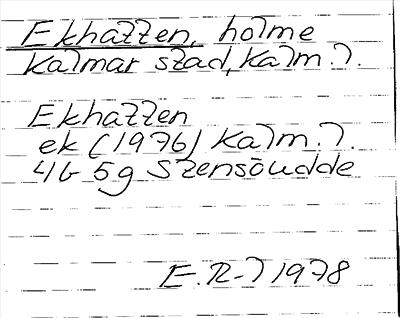 Ekhatten, holme
Kalmar stad, Kalm.l.
Ekhatten
ek (1976) Kalm.l.
4G 5g Stensöudde
E.R-l 1978